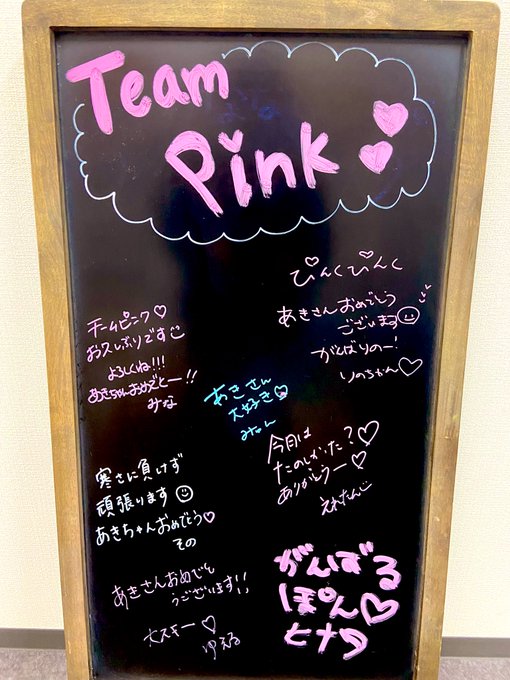 Team
Pink
ぴんくぴんく
あきさんおめでとう
ございます
がんばりのー!
りのちゃん♡
チームピンク♡
お久しぶりです
よろしくね!!!
あきちゃんおめでとー!!
みな
あきさん
大好き♡
みゆん
今日は
たのしかった?♡
ありがとうー♡
えれたんご
寒さに負けず
頑張ります☺
あきちゃんおめでとう♡
その
あきさんおめでと
うございます!!
大スキー♡
ゆえる
がんばる
ぽん♡
ヒナタ